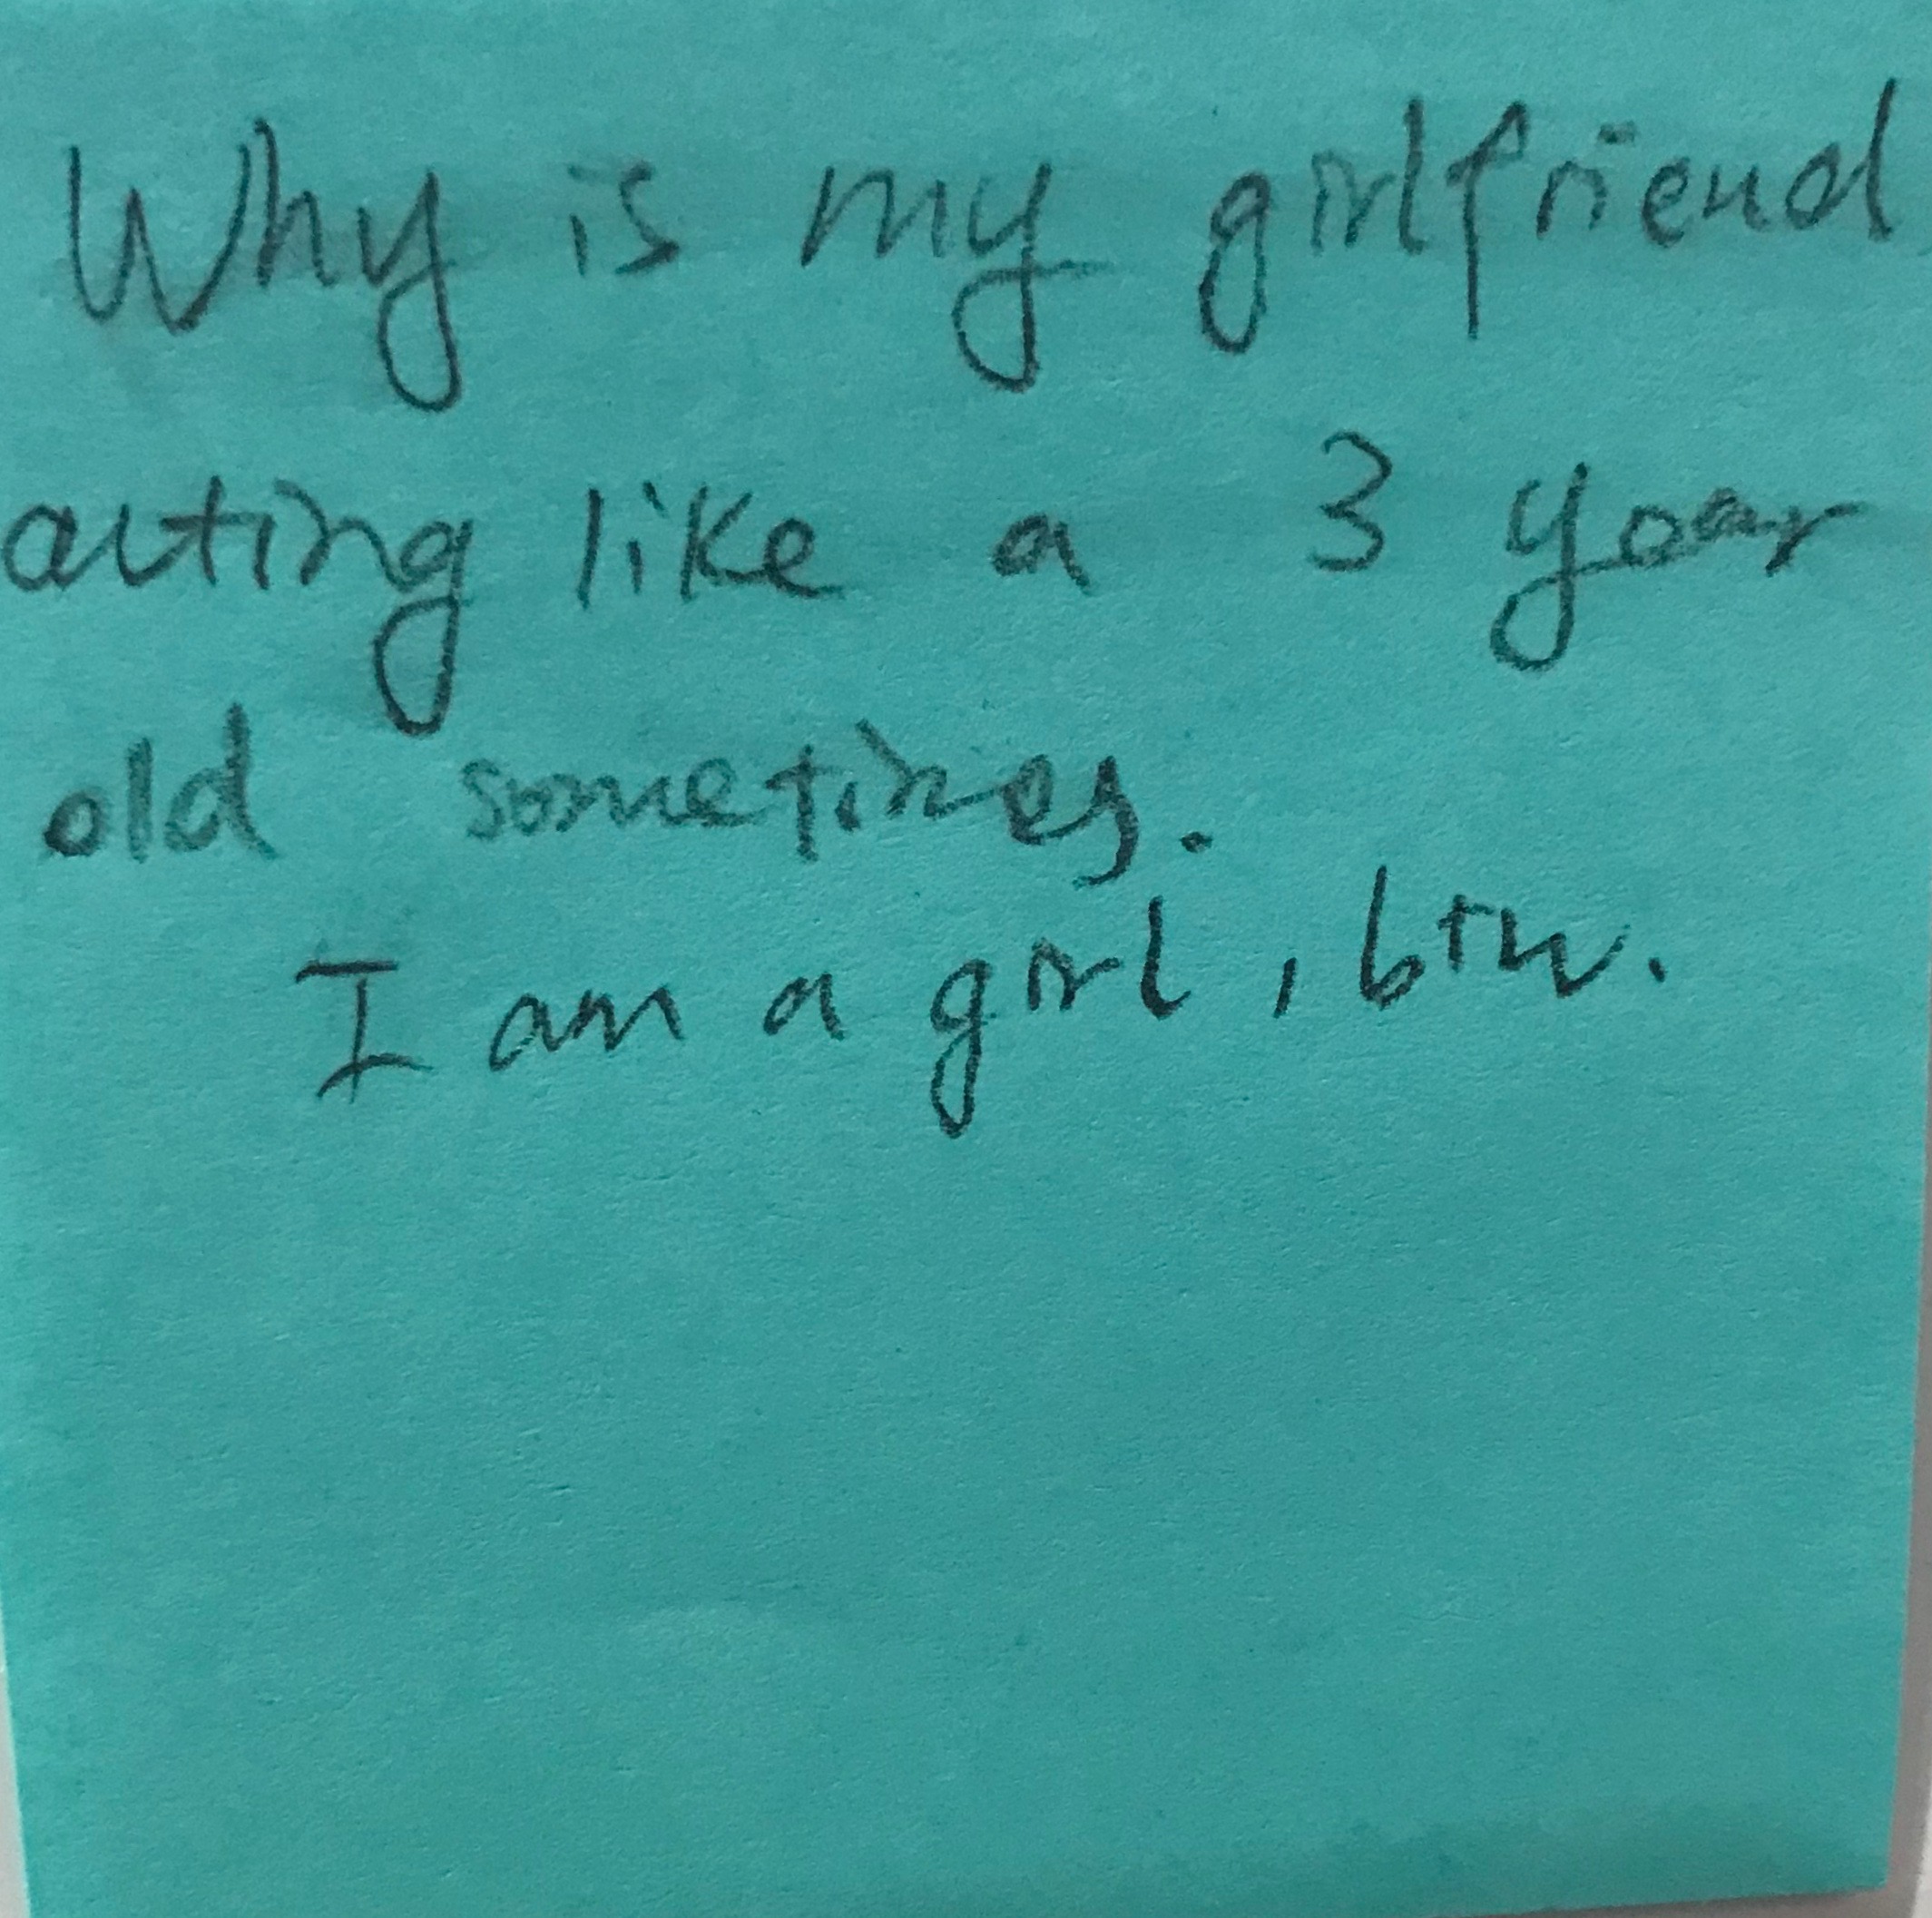 Why is my girlfriend
acting like a 3 year
old sometimes.
I am a girl, btw.